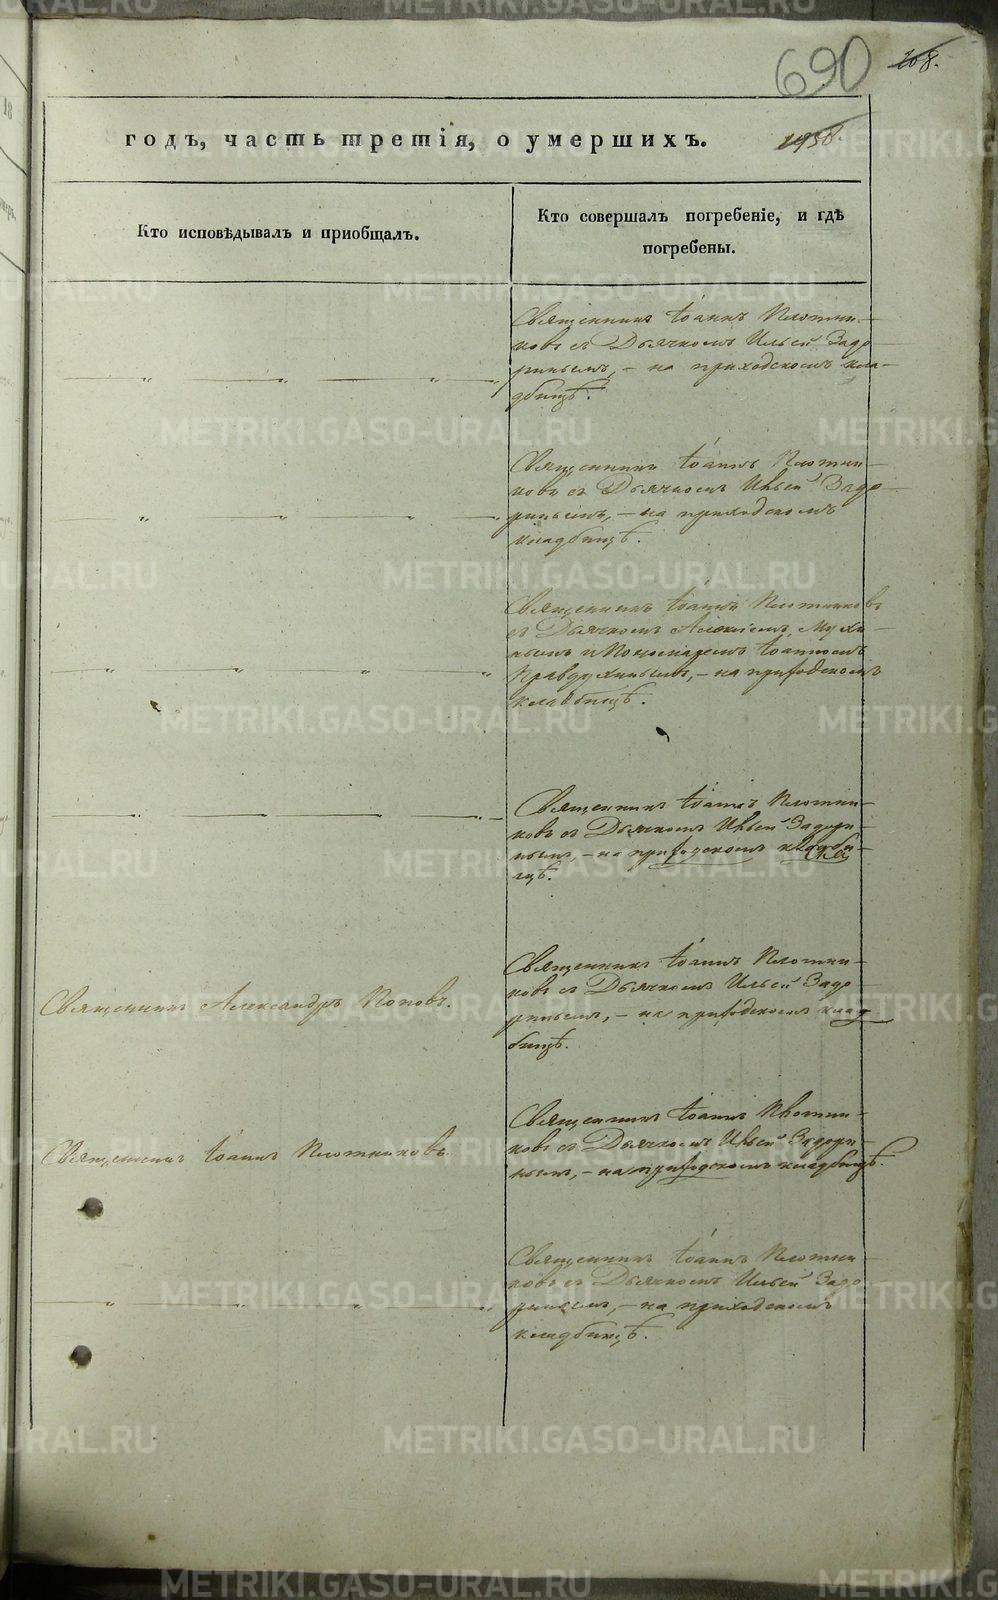 690
208.
годъ, часть третія, о умершихъ.
Кто исповѣдывалъ и приобщалъ.
Кто совершалъ погребеніе, и гдѣ
погребены.
Священникъ Іоаннъ Плотни-
ковъ съ Дьячкомъ Ильей Задо-
ринымъ, – на приходскомъ кла-
дбищѣ.
Священникъ Іоаннъ Плотни-
ковъ съ Дьячкомъ Ильей Задо-
ринымъ, – на приходскомъ
кладбищѣ.
Священникъ Іоаннъ Плотниковъ
съ Дьячкомъ Алексіемъ Мухи-
нымъ и Пономаремъ Іоанномъ
Правдухинымъ, – на приходскомъ
кладбищѣ.
Священникъ Іоаннъ Плотни-
ковъ съ Дьячкомъ Ильей Задори-
нымъ, – на приходскомъ кладби-
щѣ.
Священникъ Александръ Поповъ.
Священникъ Іоаннъ Плотни-
ковъ съ Дьячкомъ Ильей Задо-
ринымъ, – на приходскомъ клад
бищѣ.
Священникъ Іоаннъ Плотниковъ.
Священникъ Іоаннъ Плотни-
ковъ съ Дьячкомъ Ильей Задори-
нымъ, – на приходскомъ кладбищѣ.
Священникъ Іоаннъ Плотни-
ковъ съ Дьячкомъ Ильей Задо-
ринымъ, – на приходскомъ
кладбищѣ.
METRIKI.GASO-URAL.RU